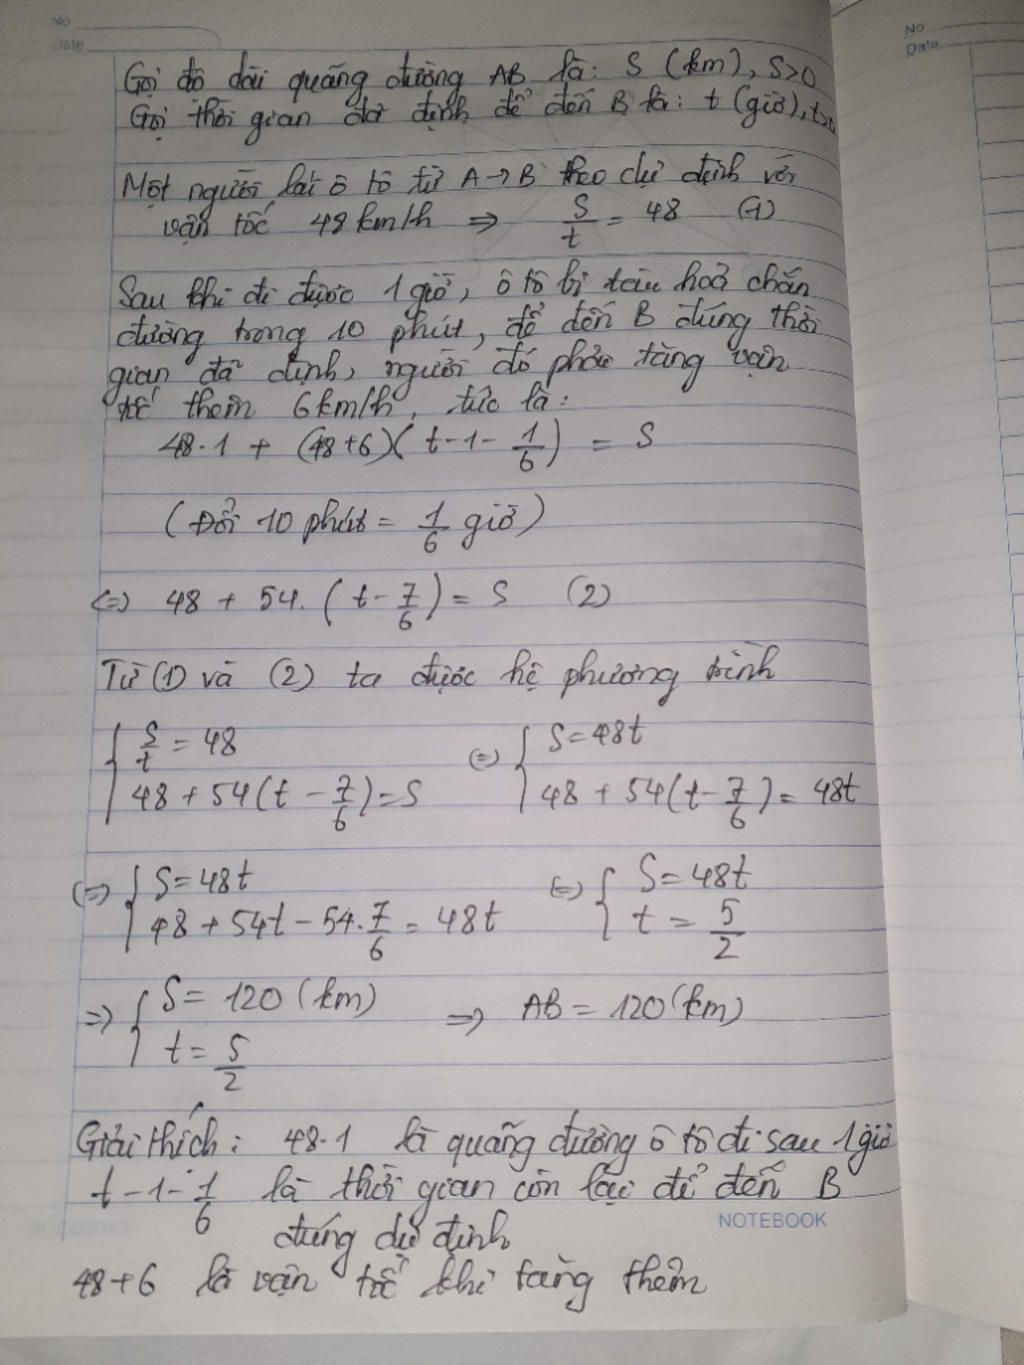 No
Date
No
Date
Gọi độ dài quãng đường AB là: S (km), S>0
Gọi thời gian dự định để đến B là: t (giờ), t>0
Một người lái ô tô từ A→B theo dự định với
vận tốc 48 km/h ⇒ S/t = 48 (1)
Sau khi đi được 1 giờ, ô tô bị tàu hoả chắn
đường trong 10 phút, để đến B đúng thời
gian đã định, người đó phải tăng vận
tốc thêm 6km/h, tức là:
48.1 + (48+6)(t-1-1/6) = S
(Đổi 10 phút = 1/6 giờ)
⇔ 48 + 54.(t-7/6) = S (2)
Từ (1) và (2) ta được hệ phương trình
{ S/t = 48 ⇔ { S=48t
48 + 54(t - 7/6)=S 48 + 54(t-7/6)= 48t
⇔ { S=48t ⇔ { S=48t
48 + 54t - 54.7/6 = 48t t = 5/2
⇒ { S= 120 (km) ⇒ AB = 120 (km)
t = 5/2
Giải thích: 48.1 là quãng đường ô tô đi sau 1 giờ
t-1-1/6 là thời gian còn lại để đến B
đúng dự định
NOTEBOOK
48+6 là vận tốc khi tăng thêm